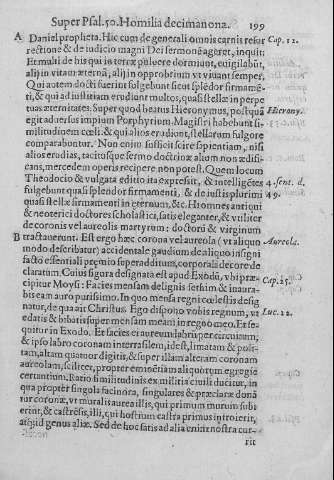 Super Psal. 50. Homilia decimanona. 199
A Daniel propheta. Hic cum de generali omnis carnis resur Cap. 12.
rectione & de iudicio magni Dei sermonē ageret, inquit:
Et multi de his qui in terræ puluere dormiunt, euigilabūt,
alij in vitam æternā, alij in opprobrium vt viuant semper.
Qui autem docti fuerint fulgebunt sicut splēdor firmamē-
ti, & qui ad iustitiam erudiunt multos, quasi stellæ in perpe
tuas æternitates. Super quod beatus Hieronymus, postquā Hierony.
egit aduersus impium Porphyrium. Magistri habebunt si-
militudinem cœli: & qui alios erudiunt, stellarum fulgore
comparabuntur. Non enim sufficit scire sapientiam, nisi
alios erudias, tacitusque sermo doctrinæ alium non ædifi-
cans, mercedem operis recipere non potest. Quem locum
Theodocio & vulgata editio ita expressit, & intelligētes 4. sent. d.
fulgebunt quasi splendor firmamenti, & de iustis plurimi 49.
quasi stellæ firmamenti in æternum, &c. Hi omnes antiqui
& neoterici doctores scholastica, satis eleganter, & vtiliter
de coronis vel aureolis martyrum: doctorū & virginum
B tractauerunt. Est ergo hæc corona vel aureola (vt aliquo Aureola.
modo describatur) accidentale gaudium de aliquo insigni
facto essentiali præmio superadditum, corporali decore de
claratum. Cuius figura designata est apud Exodū, vbi præ- Cap. 25.
cipitur Moysi: Facies mensam de lignis sethim & inaura-
bis eam auro purissimo. In quo mensa regni cœlestis desig
natur, de qua ait Christus. Ego dispono vobis regnum, vt Luc. 22.
edatis & bibatis super mensam meam in regno meo. Et se-
quitur in Exodo. Et facies ei aureum labrū per circuitum;
& ipso labro coronam interrasilem, idest, limatam & poli-
tam, altam quatuor digitis, & super illam alteram coronam
aureolam, scilicet, propter eminētiam aliquorum egregie
certantium. Ratio similitudinis ex militia ciuili ducitur, in
qua propter singula facinora, singulares & præclaræ donā
tur coronæ, vt muralis aurea illis, qui primum murum subi
erint, & castrēsis, illi, qui hostium castra primus introierit,
atque id genus aliæ. Sed de hoc satis ad alia enitit nostra cur-
rit